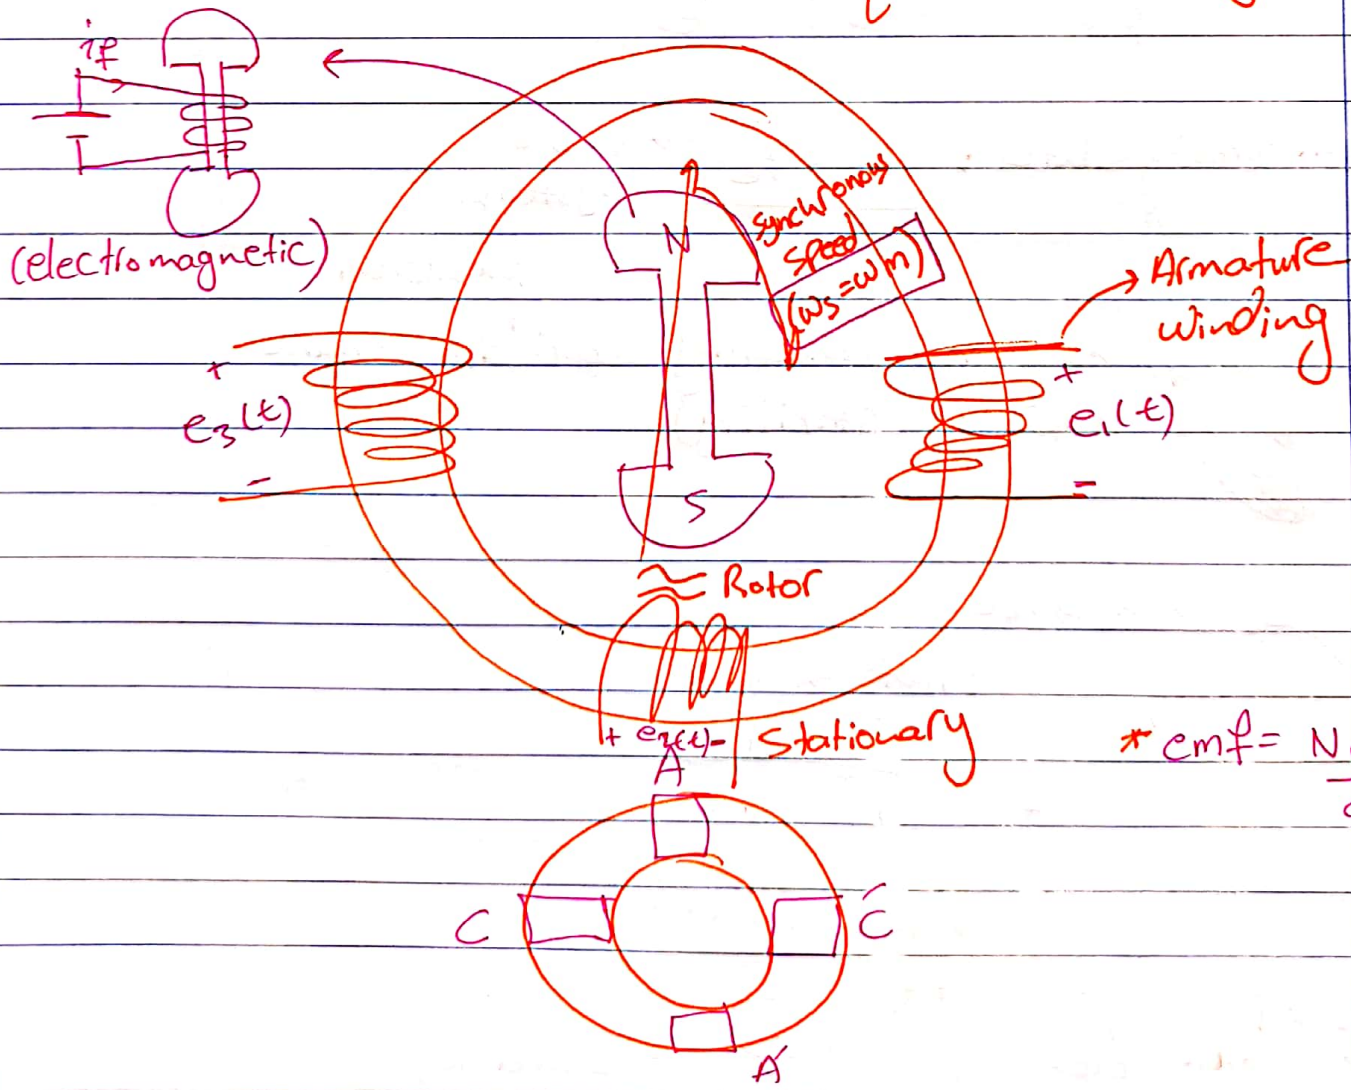 if
(electromagnetic)
N
synchronous
speed
(ws=wm)
Armature
winding
+
e3(t)
-
+
e1(t)
-
S
Rotor
+ e2(t) -
Stationary
* emf = N
A
C
C´
A´